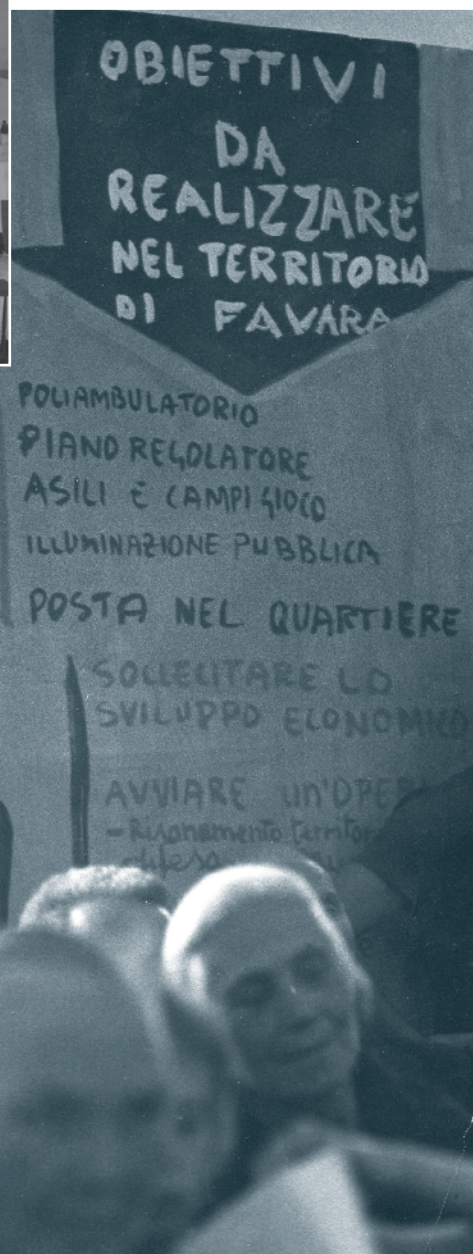 OBIETTIVI
DA
REALIZZARE
NEL TERRITORIO
DI FAVARA
POLIAMBULATORIO
PIANO REGOLATORE
ASILI E CAMPI GIOCO
ILLUMINAZIONE PUBBLICA
POSTA NEL QUARTIERE
SOLLECITARE LO
SVILUPPO ECONOMICO
AVVIARE UN'OPER
- Risanamento territor
difesa